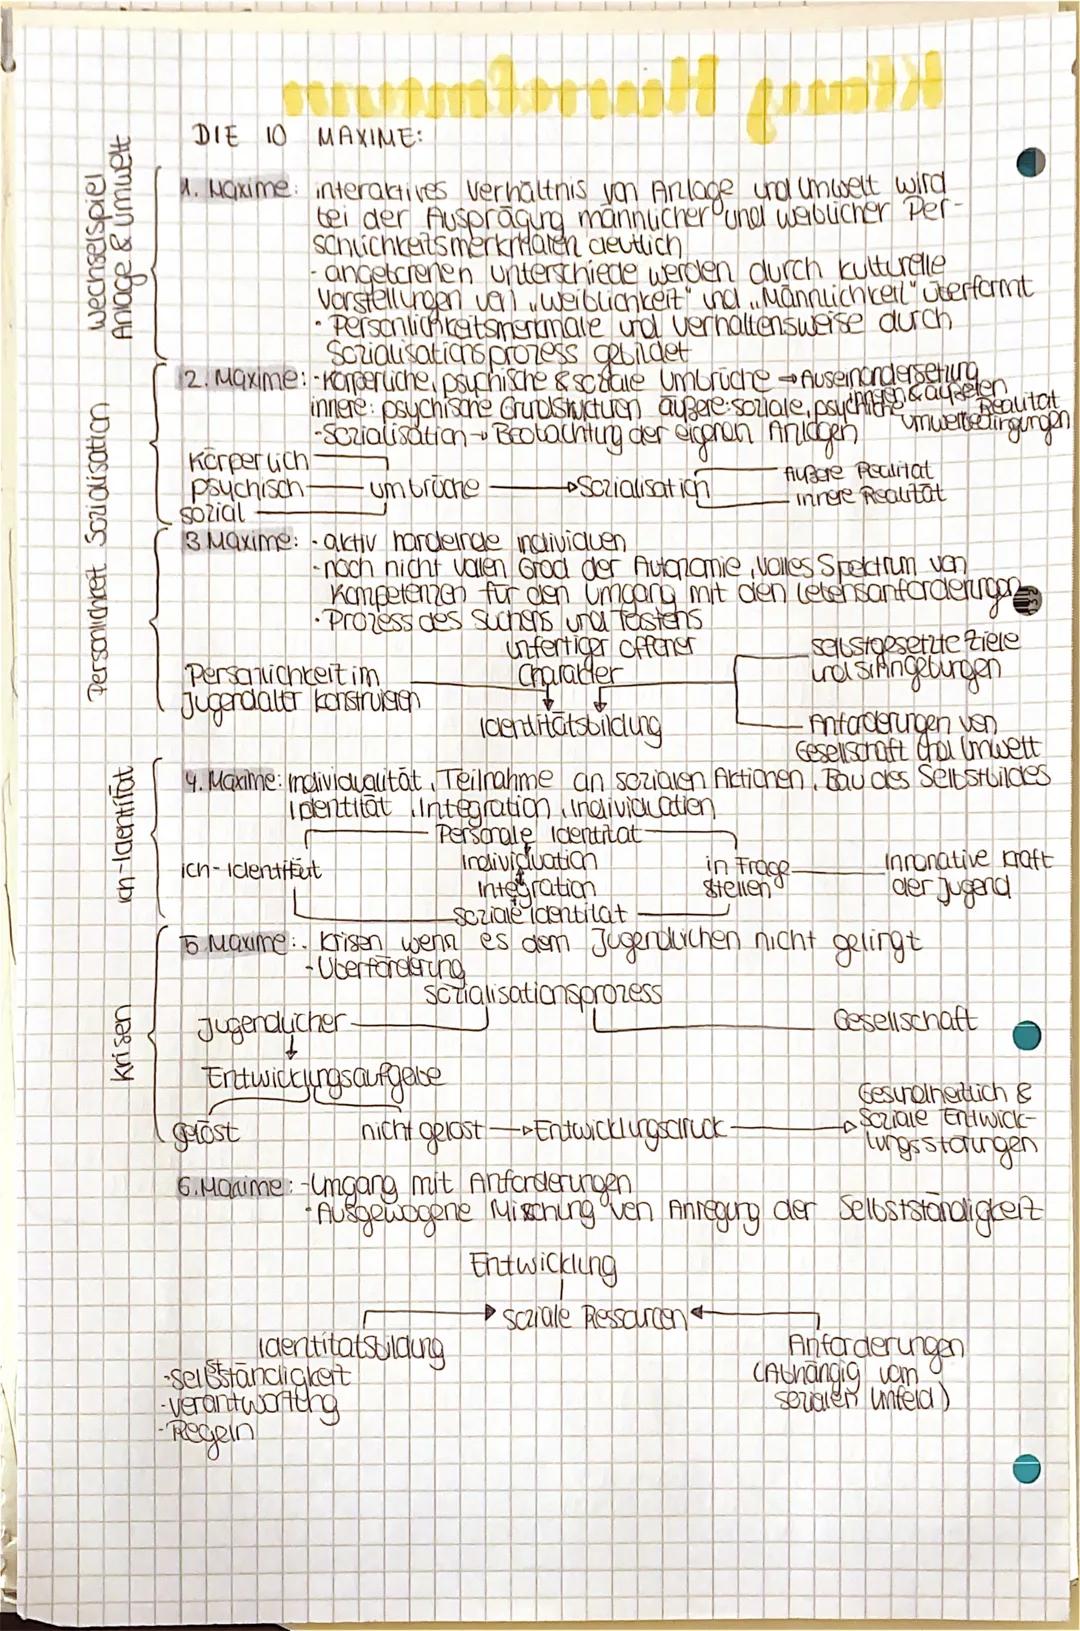 Klaus Hurrelmann
DIE 10 MAXIME:
Wechselspiel
Anlage & Umwelt
1. Maxime: interaktives Verhältnis von Anlage und Umwelt wird
bei der Ausprägung männlicher und weiblicher Per-
sönlichkeitsmerkmalen deutlich
- angeborenen Unterschiede werden durch kulturelle
Vorstellungen von "Weiblichkeit" und "Männlichkeit" überformt
• Persönlichkeitsmerkmale und Verhaltensweise durch
Sozialisationsprozess gebildet
Sozialisation
2. Maxime: - Körperliche, psychische & soziale Umbrüche → Auseinandersetzung
inneren & äußeren
Realität
innere: psychische Grundstrukturen äußere: soziale, psychische Umweltbedingungen
- Sozialisation → Beobachtung der eigenen Anlagen
Körperlich
psychisch
sozial
Umbrüche
Sozialisation
Äußere Realität
innere Realität
Persönlichkeit
3 Maxime: - aktiv handelnde Individuen
- noch nicht vollen Grad der Autonomie, volles Spektrum von
Kompetenzen für den Umgang mit den Lebensanforderungen
• Prozess des Suchens und Tastens
unfertiger offener
Charakter
selbstgesetzte Ziele
und Sinngebungen
Persönlichkeit im
Jugendalter konstruieren
Identitätsbildung
Anforderungen von
Gesellschaft und Umwelt
Ich-Identität
4. Maxime: Individualität, Teilnahme an sozialen Aktionen, Bau des Selbstbildes
Identität, Integration, Individuation
Personale Identität
ich-Identität
Individuation
Integration
in Frage
stellen
Innovative Kraft
der Jugend
soziale Identität
Krisen
5 Maxime: . Krisen wenn es dem Jugendlichen nicht gelingt
- Überforderung
Sozialisationsprozess
Jugendlicher
Gesellschaft
Entwicklungsaufgabe
gelöst
nicht gelöst → Entwicklungsdruck
Gesundheitlich &
Soziale Entwick-
lungsstörungen
6. Maxime: - Umgang mit Anforderungen
- Ausgewogene Mischung von Anregung der Selbstständigkeit
Entwicklung
soziale Ressourcen
Identitätsbildung
- Selbstständigkeit
- Verantwortung
- Regeln
Anforderungen
(Abhängig vom
sozialen Umfeld)